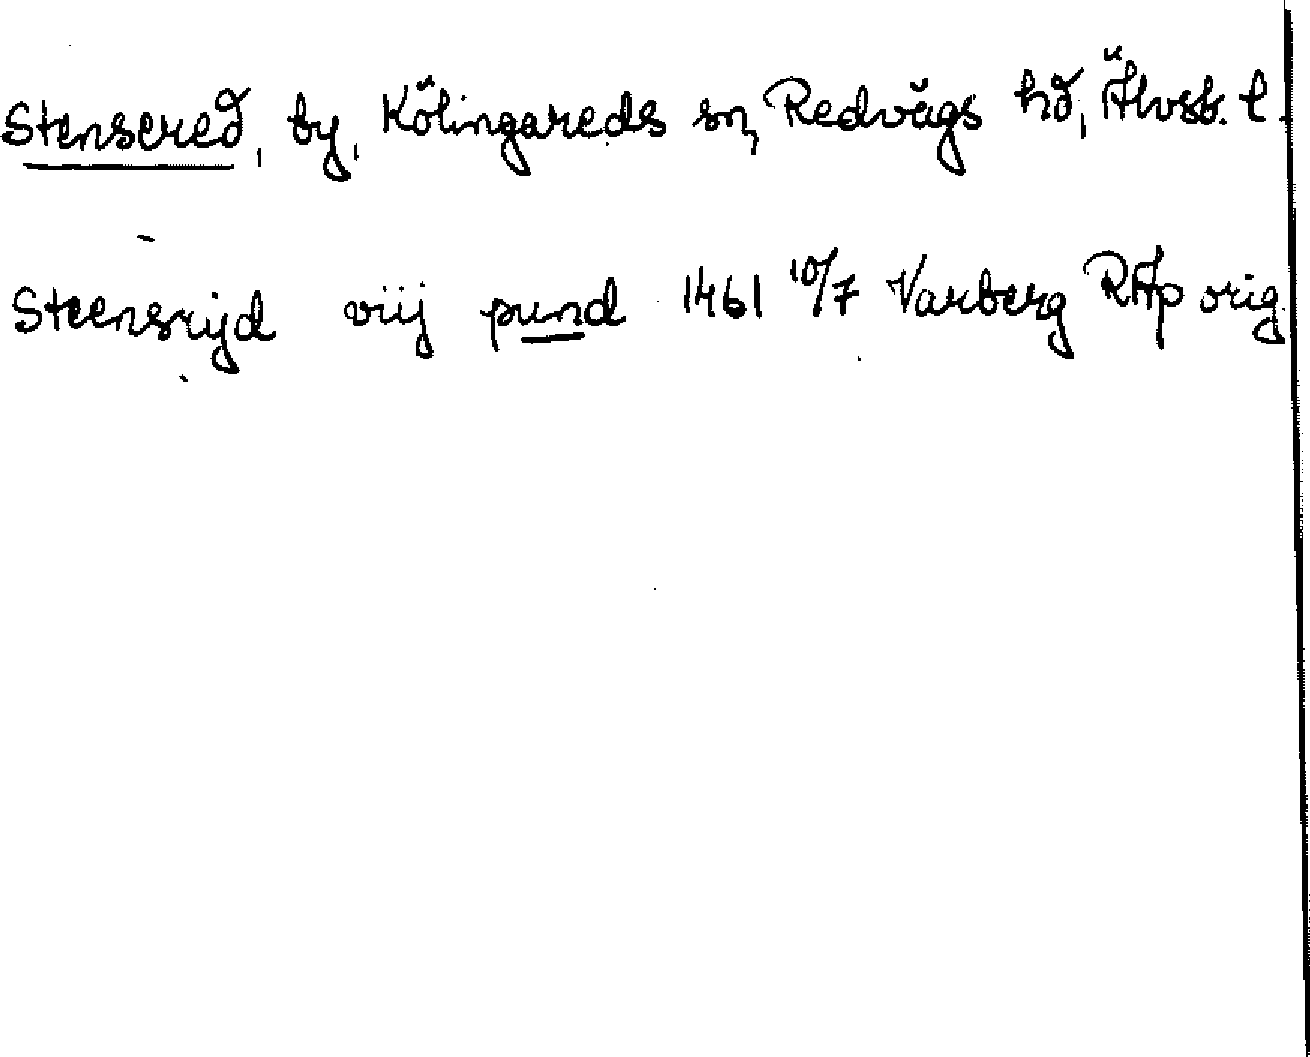 Stensered, by, Kölingareds sn, Redvägs hd, Älvsb. l.
Steensrijd viij pund 1461 10/7 Varberg RAp orig.